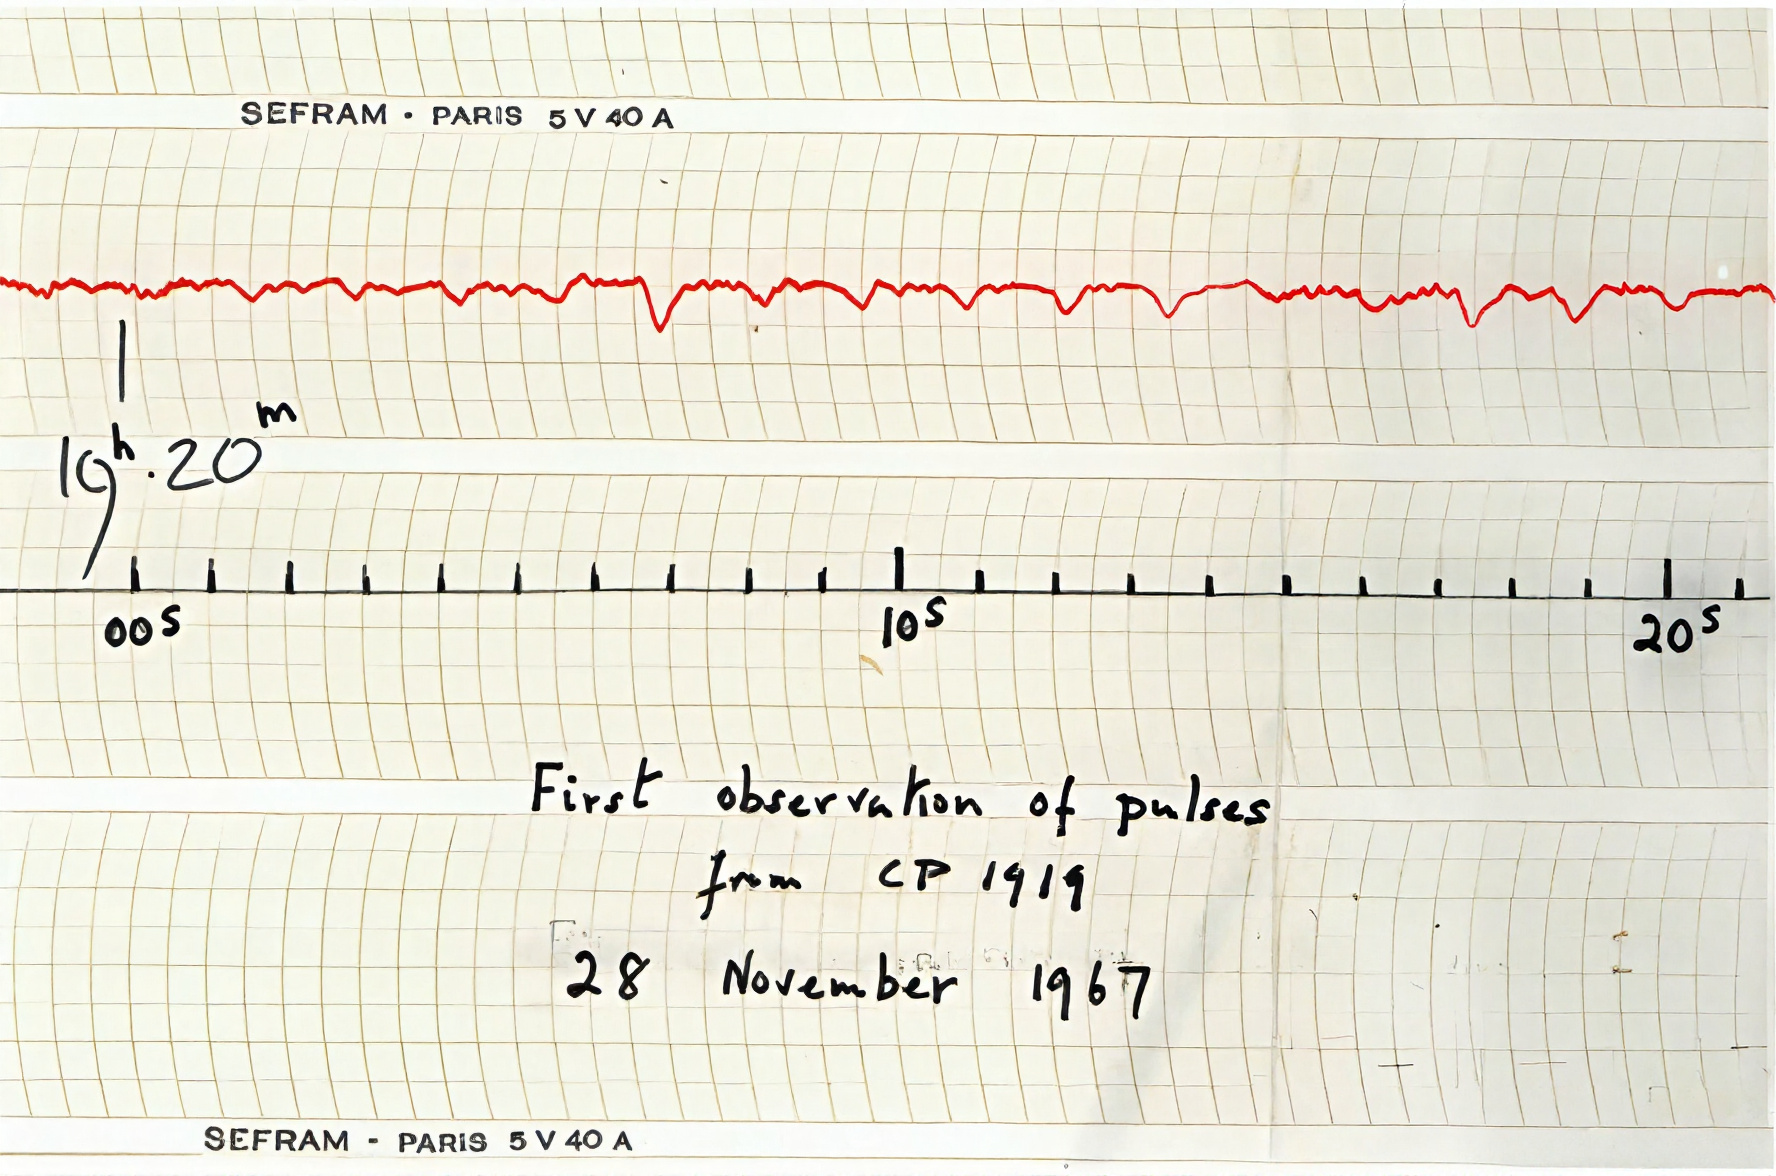 SEFRAM · PARIS 5 V 40 A
19h.20m
00s 10s 20s
First observation of pulses
from CP 1919
28 November 1967
SEFRAM - PARIS 5 V 40 A